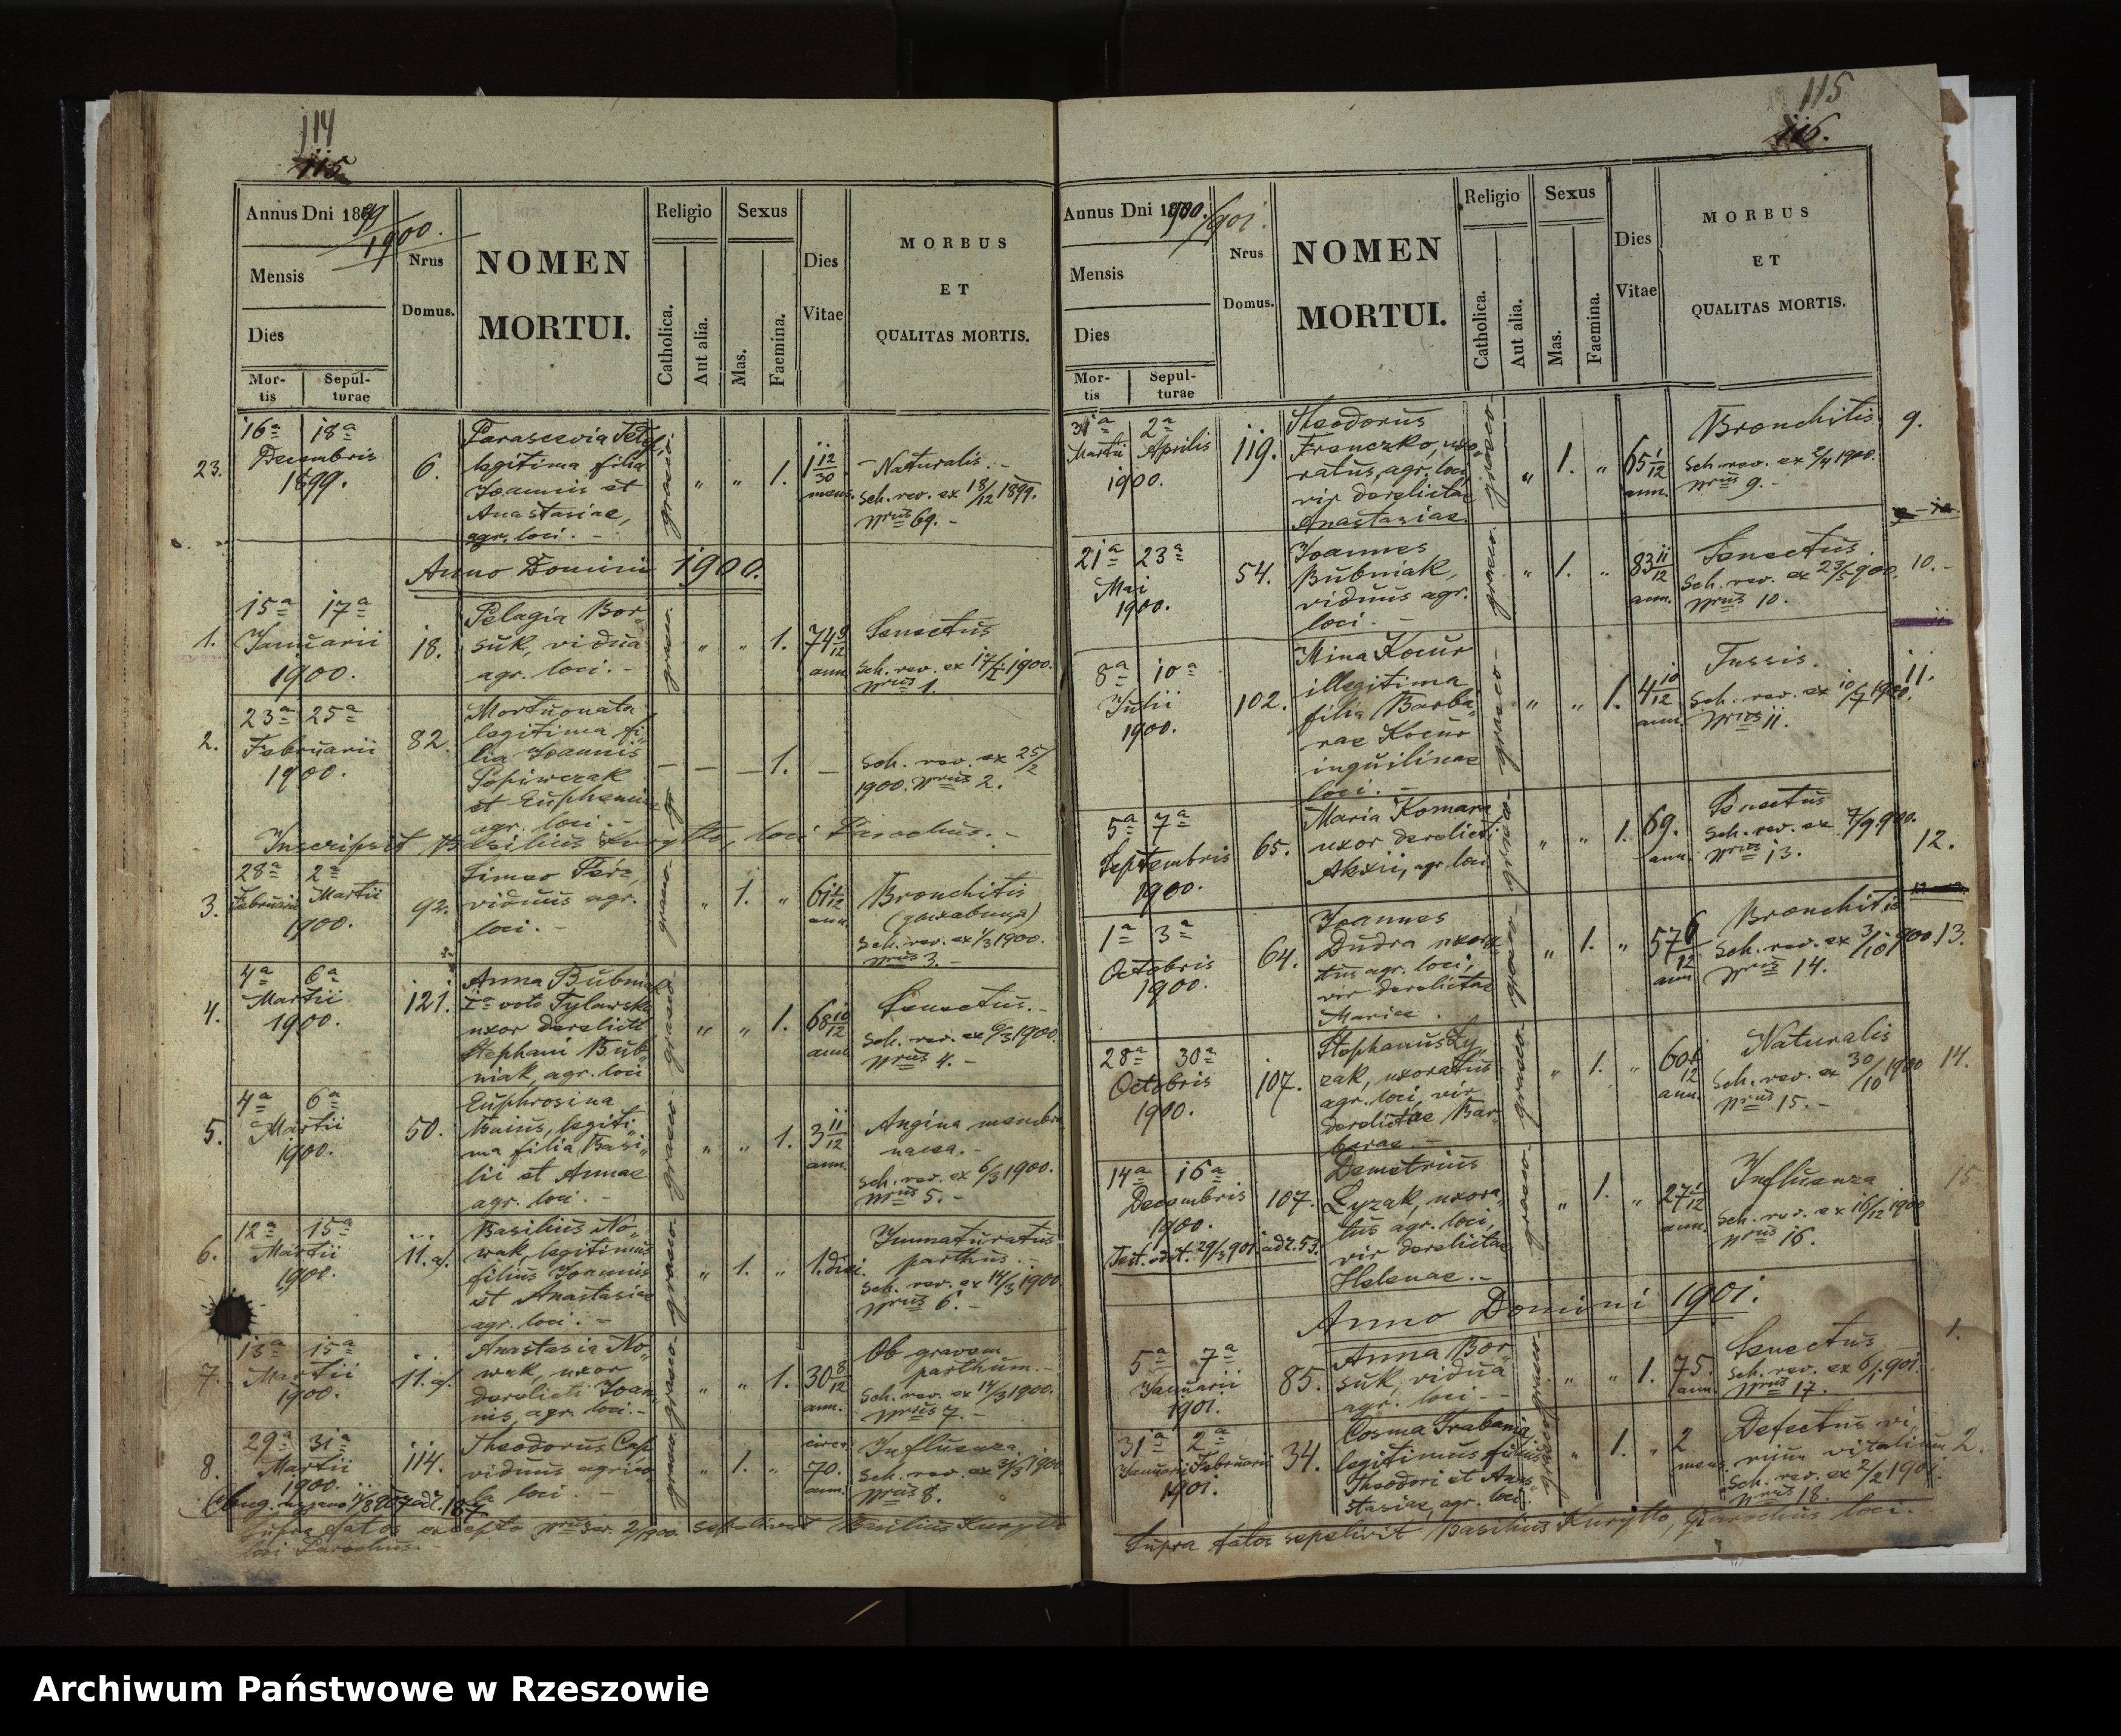 114
115
Annus Dni 1899/1900.
Mensis
Dies
Mor-
tis
Sepul-
turae
Nrus
Domus.
NOMEN
MORTUI.
Religio
Catholica.
Aut alia.
Sexus
Mas.
Faemina.
Dies
Vitae
MORBUS
ET
QUALITAS MORTIS.
23.
16a 18a
Decembris
1899.
6.
Parascevia
legitima filia
Joannis et
Anastasiae,
agr. loci. -
graeco
" " 1.
1 12/30
mens.
Naturalis. -
Sch. rev. ex 18/12 1899.
Nrus 69. -
Anno Domini 1900.
1.
15a 17a
Januarii
1900.
18.
Pelagia Bor-
suk, vidua
agr. loci. -
graeco
" " 1.
74 9/12
ann.
Senectus
Sch. rev. ex 17/I 1900.
Nrus 1.
2.
23a 25a
Februarii
1900.
82.
Mortuonata
legitima fi-
lia Joannis
Popiwczak
et Euphemiae
agr. loci. -
gr.
— — — 1. —
Sch. rev. ex 25/2
1900. Nrus 2.
Inscripsit Basilius Kuryłło, loci Parochus. -
3.
28a 2a
Februarii Martii
1900.
92.
Simeo
viduus agr.
loci. -
graeco
" 1. "
61 1/12
ann.
Bronchitis
Sch. rev. ex 1/3 1900.
Nrus 3. -
4.
4a 6a
Martii
1900.
121.
Anna Bubniak
Ia voto Tylawska
uxor derelicti
Stephani Bub-
niak, agr. loci
graeco
" " 1.
68 10/12
ann.
Senectus. -
Sch. rev. ex 6/3 1900.
Nrus 4. -
5.
4a 6a
Martii
1900.
50.
Euphrosina
Baius, legiti-
ma filia Basi-
lii et Annae
agr. loci. -
graeco
" " 1.
3 11/12
ann.
Angina membra-
nacea. -
Sch. rev. ex 6/3 1900.
Nrus 5. -
6.
12a 15a
Martii
1900.
11. a/.
Basilius No-
wak, legitimus
filius Joannis
et Anastasiae
agr. loci. -
graeco
" 1. "
1. diei.
Immaturatus
parthus. -
Sch. rev. ex 14/3 1900
Nrus 6. -
7.
13a 15a
Martii
1900.
11. a/.
Anastasia No-
wak, uxor
derelicti Joan-
nis, agr. loci. -
graeco
" " 1.
30 8/12
ann.
Ob gravem
parthum. -
Sch. rev. ex 14/3 1900.
Nrus 7. -
8.
29a 31a
Martii
1900.
114.
Theodorus Cap
viduus agrico-
la loci. -
graeco
" 1. "
circa
70.
ann.
Influenza
Sch. rev. ex 31/3 1900
Nrus 8.
Supra datos excepto Nrus ser. 2/900. sepelivit Basilius Kuryłło
loci Parochus. -
115
116.
Annus Dni 1900./901.
Mensis
Dies
Mor-
tis
Sepul-
turae
Nrus
Domus.
NOMEN
MORTUI.
Religio
Catholica.
Aut alia.
Sexus
Mas.
Faemina.
Dies
Vitae
MORBUS
ET
QUALITAS MORTIS.
31a 2a
Martii Aprilis
1900.
119.
Theodorus
Frenczko, uxo-
ratus, agr. loci
vir derelictae
Anastasiae
graeco
" 1. "
65 1/12
ann.
Bronchitis
Sch. rev. ex 2/4 1900.
Nrus 9. -
9.
21a 23a
Mai
1900.
54.
Joannes
Bubniak,
viduus agr.
loci. -
graeco
" 1. "
83 11/12
ann.
Senectus.
Sch. rev. ex 23/5 900.
Nrus 10.
10. -
8a 10a
Julii
1900.
102.
Mina Kocur
illegitima
filia Barba-
rae Kocur
inquilinae
loci. -
graeco
" " 1.
4 10/12
ann.
Tussis.
Sch. rev. ex 10/7 1900.
Nrus 11.
11.
5a 7a
Septembris
1900.
65.
Maria Komara
uxor derelicti
Alexii, agr. loci
graeco
" " 1.
69.
ann.
Senectus
Sch. rev. ex 7/9 900.
Nrus 13.
12.
1a 3a
Octobris
1900.
64.
Joannes
Dudra uxora-
tus agr. loci,
vir derelictae
Mariae.
graeco
" 1. "
57 6/12
ann.
Bronchitis
Sch. rev. ex 3/10 900.
Nrus 14.
13.
28a 30a
Octobris
1900.
107.
Stephanus Ły-
zak, uxoratus
agr. loci, vir
derelictae Bar-
barae. -
graeco
" 1. "
60 1/12
ann.
Naturalis
Sch. rev. ex 30/10 1900
Nrus 15. -
14.
14a 16a
Decembris
1900.
Test. edit. 29/3 901 ad 2. 53.
107.
Demetrius
Łyzak, uxora-
tus agr. loci,
vir derelictae
Helenae. -
graeco
" 1. "
27 1/12
ann.
Influenza
Sch. rev. ex 16/12 1900
Nrus 16.
15.
Anno Domini 1901.
5a 7a
Januarii
1901.
85.
Anna Bor-
suk, vidua
agr. loci. -
graeco
" " 1.
75.
ann.
Senectus
Sch. rev. ex 6/1 901.
Nrus 17.
1.
31a 2a
Januarii Februarii
1901.
34.
Cosma Hrabania,
legitimus filius
Theodori et Anas-
tasiae, agr. loci.
graeco
" 1. "
2
mens.
Defectus vi-
rium vitalium
Sch. rev. ex 2/2 1901.
Nrus 18.
2.
Supra datos sepelivit Basilius Kuryłło, Parochus loci.
Archiwum Państwowe w Rzeszowie